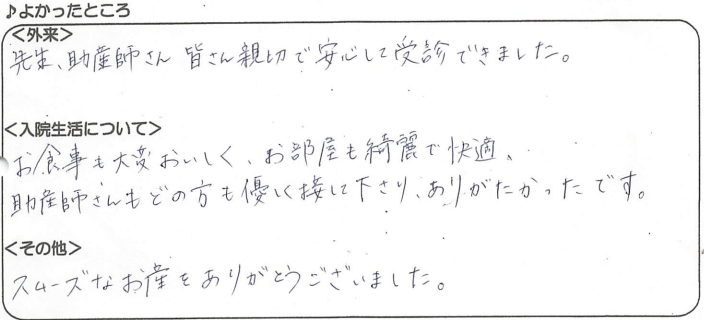 ♪よかったところ
<外来>
先生、助産師さん 皆さん親切で安心して受診できました。
<入院生活について>
お食事も大変おいしく、お部屋も綺麗で快適、
助産師さんもどの方も優しく接して下さり、ありがたかったです。
<その他>
スムーズなお産をありがとうございました。